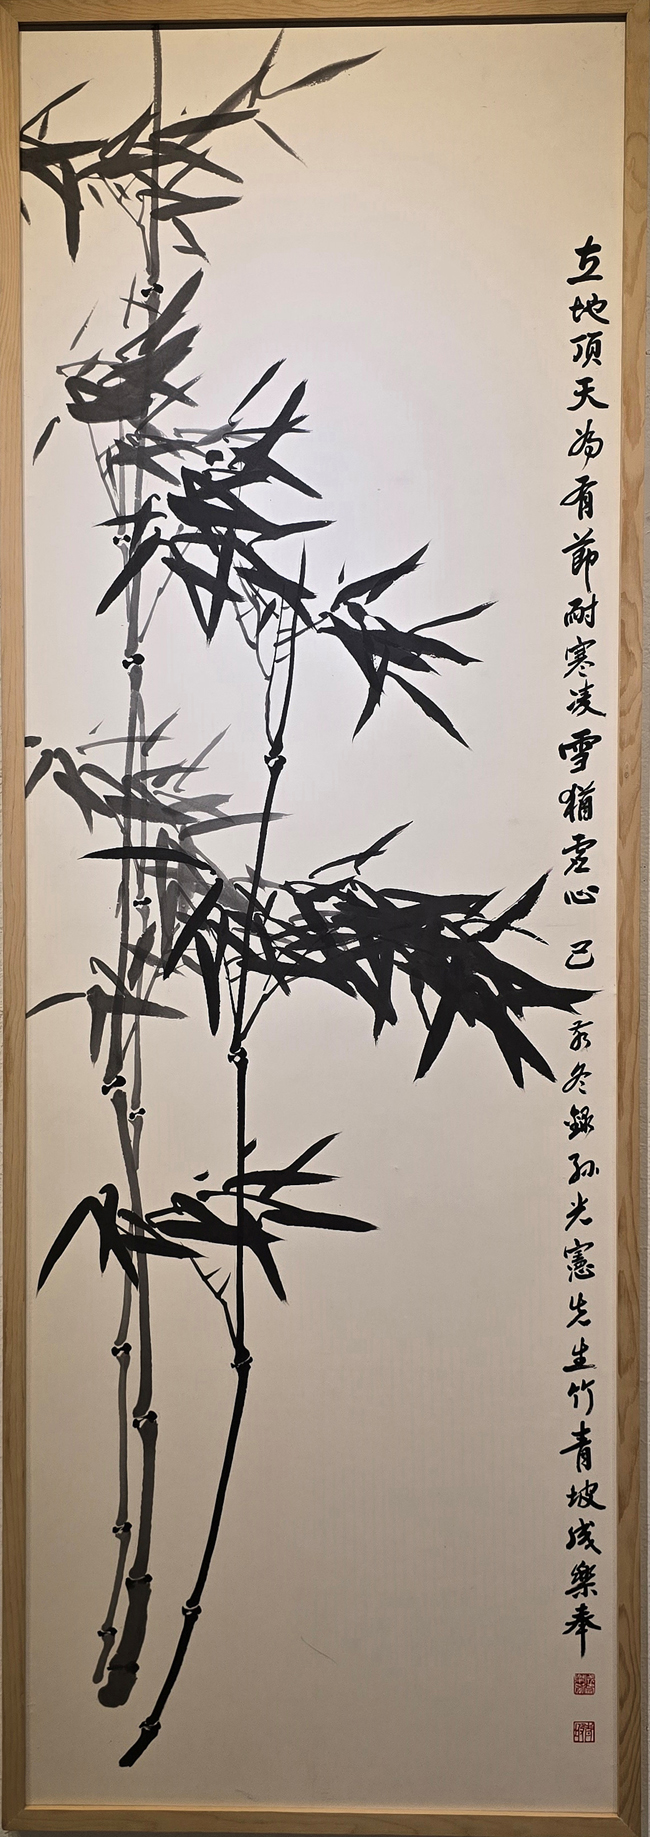 立地頂天為有節耐寒凌雪猶虛心 己亥冬錄孫光憲先生竹青坡成樂奉